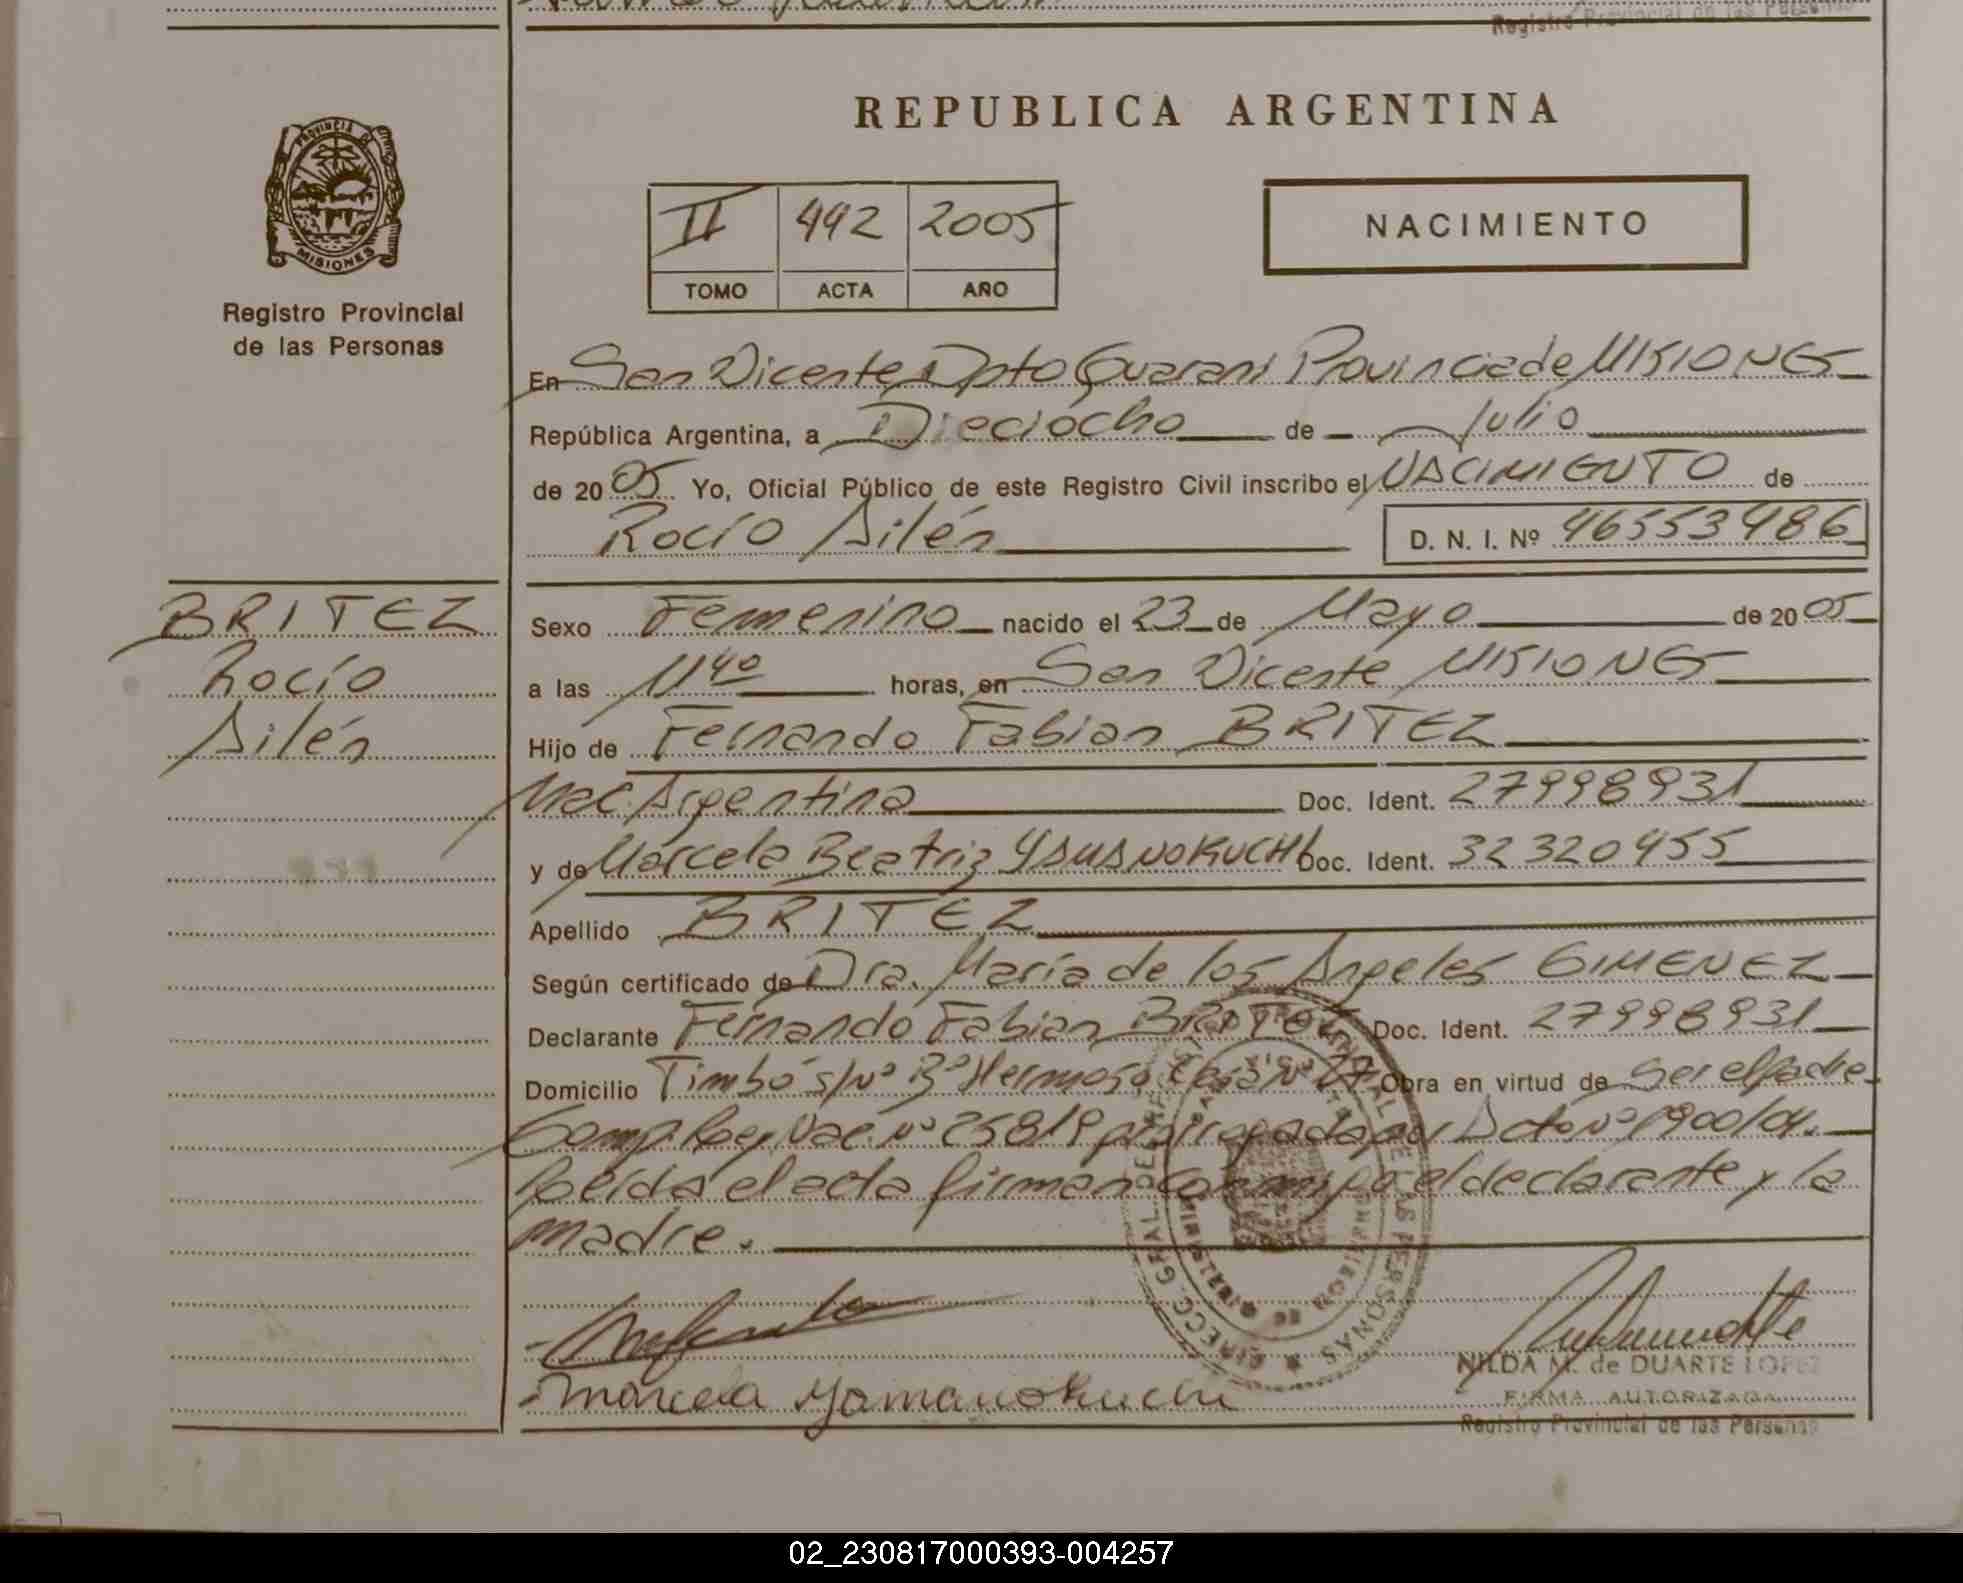 Registro Provincial de las Personas
REPUBLICA ARGENTINA
PROVINCIA DE
MISIONES
Registro Provincial
de las Personas
II 442 2005
TOMO ACTA AÑO
NACIMIENTO
En San Vicente Dpto Guaraní Provincia de MISIONES
República Argentina, a Dieciocho de Julio
de 2005 Yo, Oficial Público de este Registro Civil inscribo el NACIMIENTO de
Rocío Ailén D. N. I. Nº 46553486
BRITEZ
Rocío
Ailén
Sexo Femenino nacido el 23 de Mayo de 2005
a las 11 40 horas, en San Vicente MISIONES
Hijo de Fernando Fabian BRITEZ
Nac. Argentina Doc. Ident. 27998931
y de Marcela Beatriz YAMANOKUCHI Doc. Ident. 32320455
Apellido BRITEZ
Según certificado de Dra. María de los Angeles GIMENEZ
Declarante Fernando Fabian BRITEZ Doc. Ident. 27998931
Domicilio Timbó s/Nº Bº Hermoso Casa Nº 27 Obra en virtud de Ser el padre
Comp. Ley Nac. Nº 25819 prorrogada por Dcto Nº 1900/04.
Leída el acta firman conmigo el declarante y la
madre.
Marcela Yamanokuchi
NILDA M. de DUARTE LOPEZ
FIRMA AUTORIZADA
Registro Provincial de las Personas
02_230817000393-004257